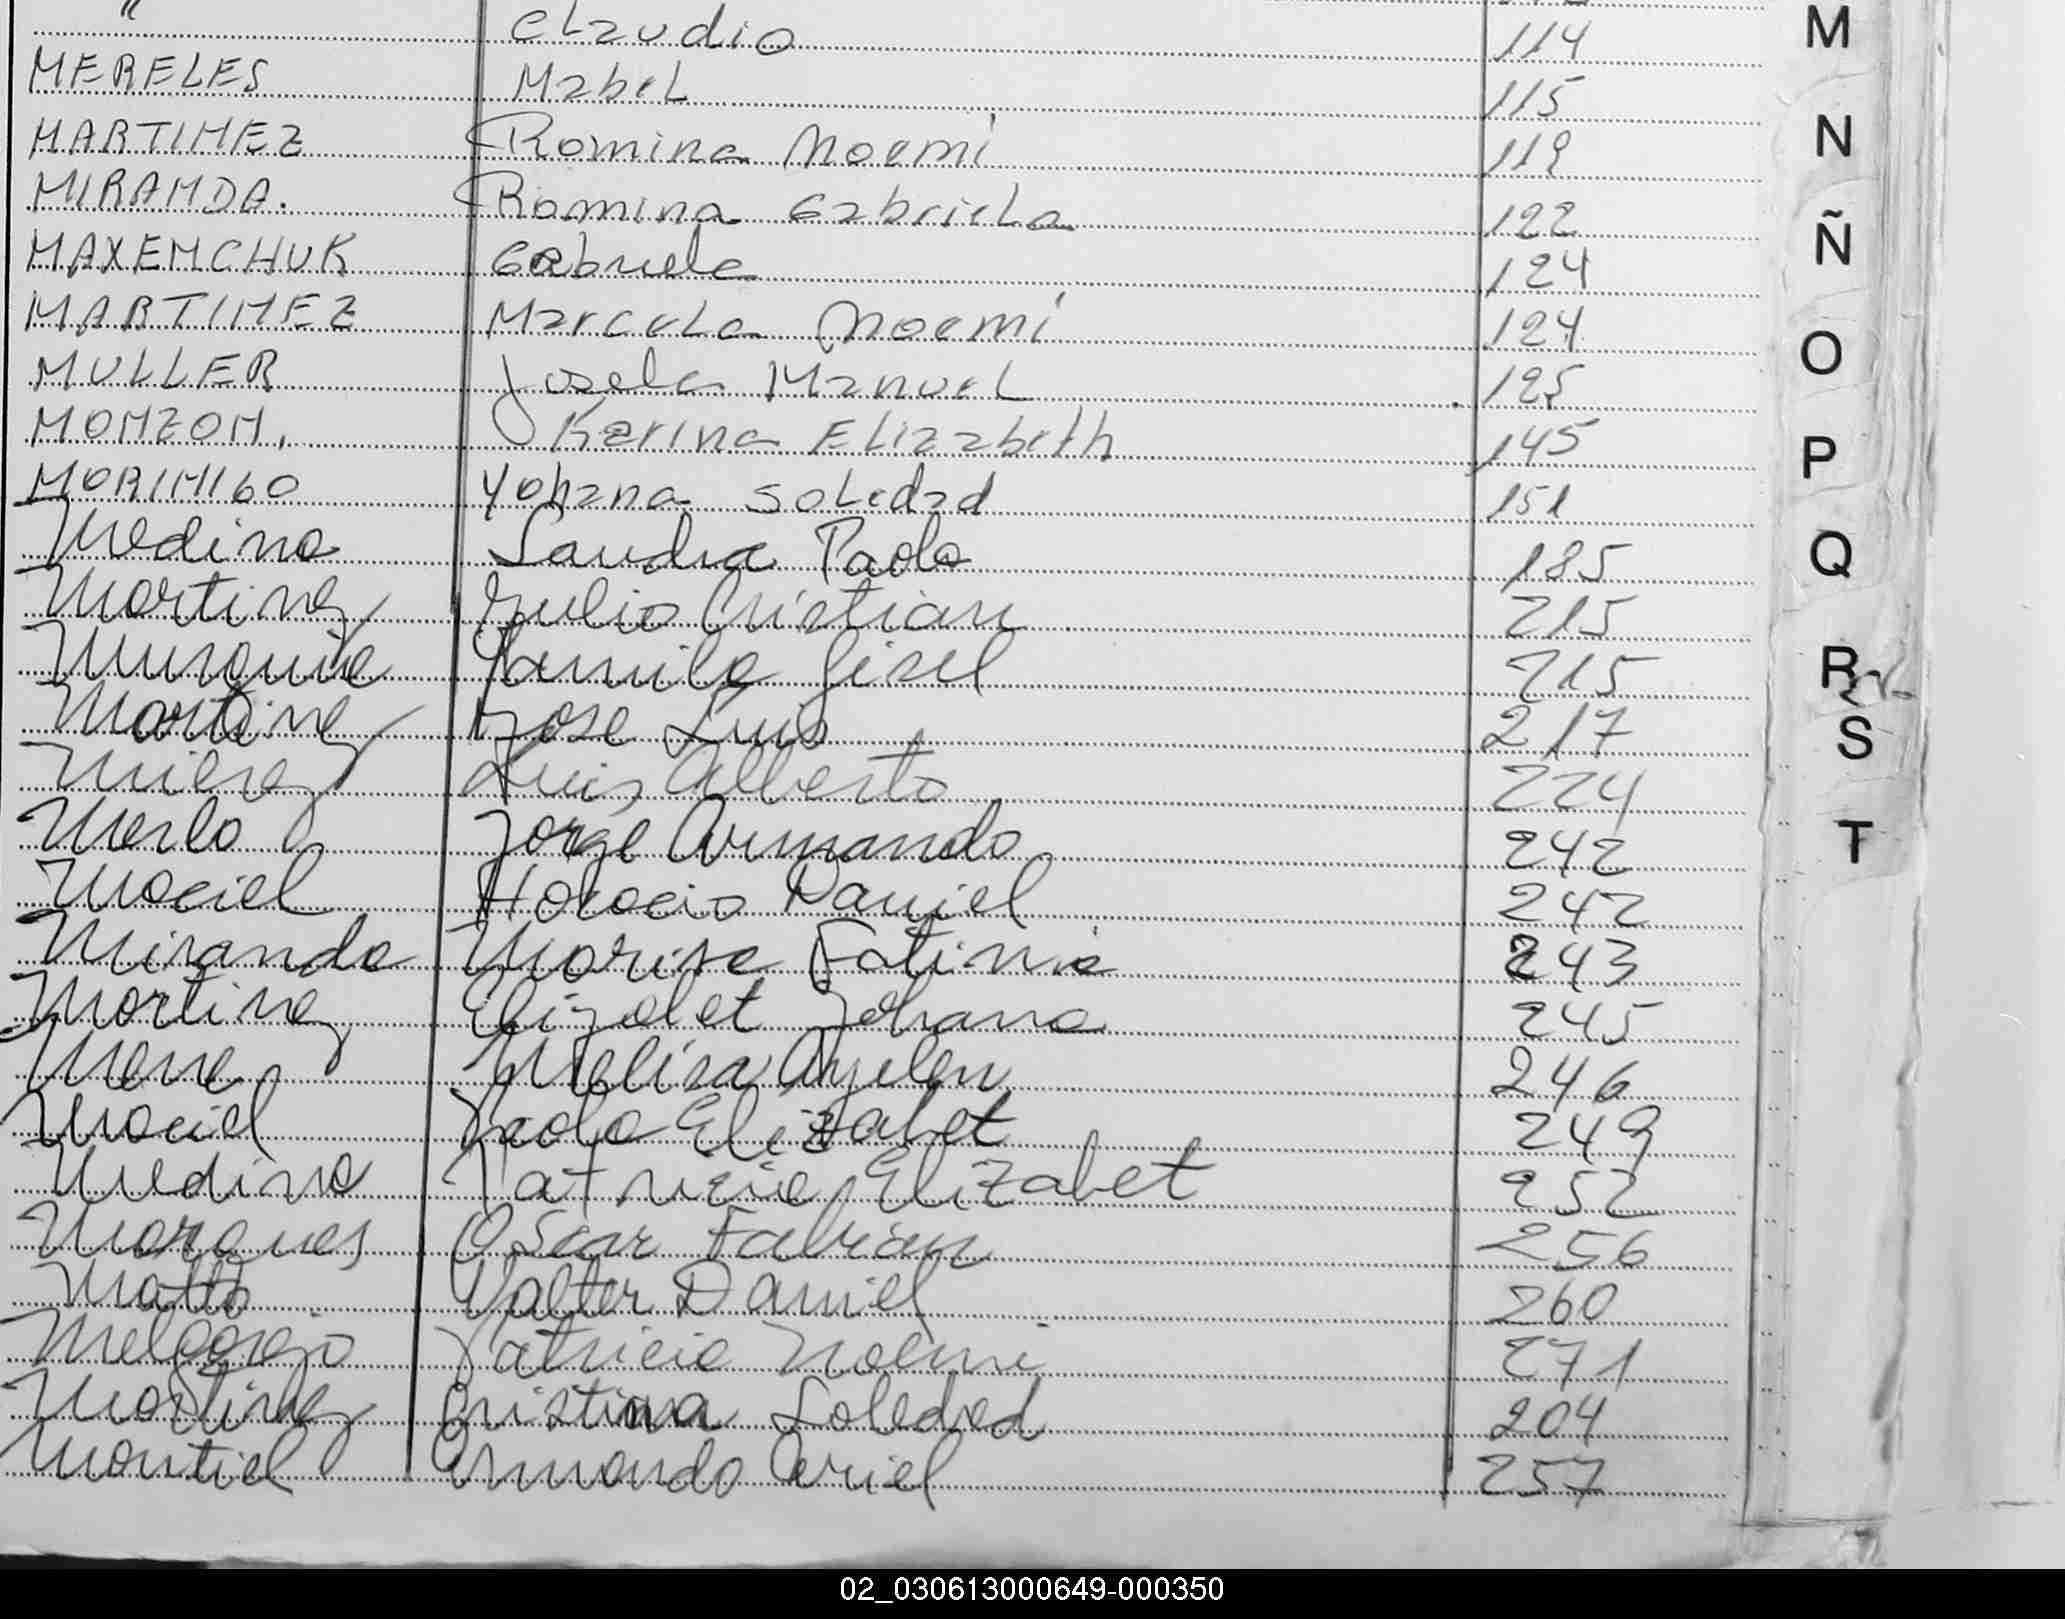 " Claudio 114
MERELES Mabel 115
MARTINEZ Romina Noemí 119
MIRANDA. Romina Gabriela 122
MAXEMCHUK Gabriela 124
MARTINEZ Marcela Noemí 124
MULLER Joséle Manuel 125
MONZON. Karina Elizabeth 145
MORINIGO Yohana Soledad 151
Medina Sandra Paola 185
Martinez Julio Cristian 215
Yamila Gisel 215
Martinez Jose Luis 217
Mierez Luis Alberto 224
Merlo Jorge Armando 242
Maciel Horacio Daniel 242
Miranda Marisa Fatima 243
Martinez Elizabet Johana 245
Mene Melisa Ayelen 246
Maciel Paola Elizabet 249
Medina Patricia Elizabet 252
Marques Oscar Fabian 256
Matto Walter Daniel 260
Melgarejo Patricia Noemi 271
Martinez Cristina Soledad 204
Montiel Armando Ariel 257
M
N
Ñ
O
P
Q
R
S
T
02_030613000649-000350